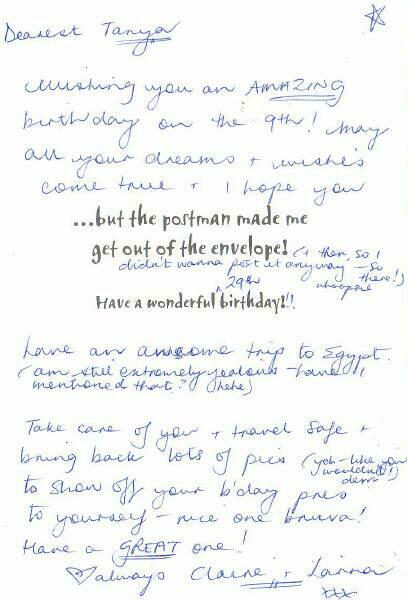 Dearest Tanya
Wishing you an AMAZING
birthday on the 9th! May
all your dreams + wishes
come true + I hope you
...but the postman made me
get out of the envelope! (+ then, so I
didn't wanna post it anyway – so
there!)
29th whoopee
Have a wonderful birthday!!!
have an awesome trip to Egypt.
(am still extremely jealous – have I
mentioned that? hehe)
Take care of you + travel safe +
bring back lots of pics (yeh – like you
wouldn't!)
to show off your b'day pres
to yourself – nice one bruva!
Have a GREAT one!
always Claire + 
xxx